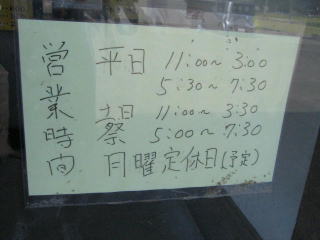 営業時間
平日 11:00~ 3:00
5:30~ 7:30
土日祭 11:00~ 3:30
5:00~ 7:30
月曜定休日(予定)